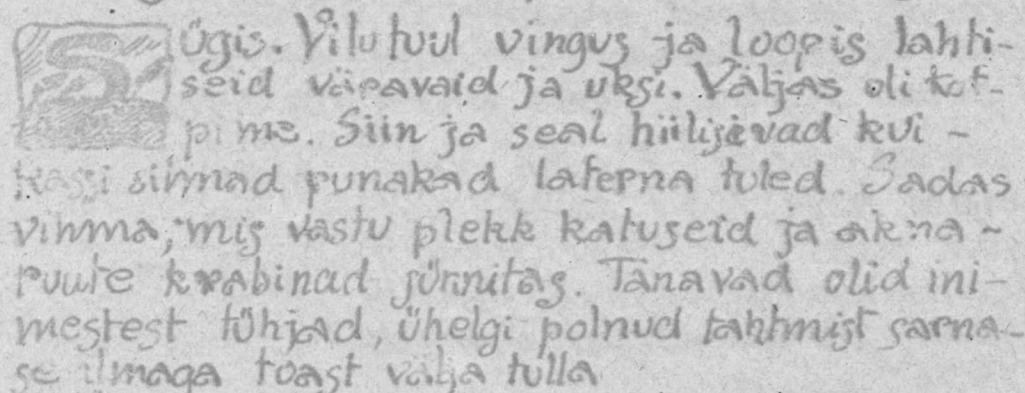 Sügis. Vilu tuul vingus ja loopis lahti-
seid väravaid ja uksi. Väljas oli kot-
pime. Siin ja seal hiilisivad kui -
kassi silmad punakad laterna tuled. Sadas
vihma, mis vastu plekk katuseid ja akna -
ruute krabinad sünnitas. Tänavad olid ini-
mestest tühjad, ühelgi polnud tahtmist sarna-
se ilmaga toast välja tulla